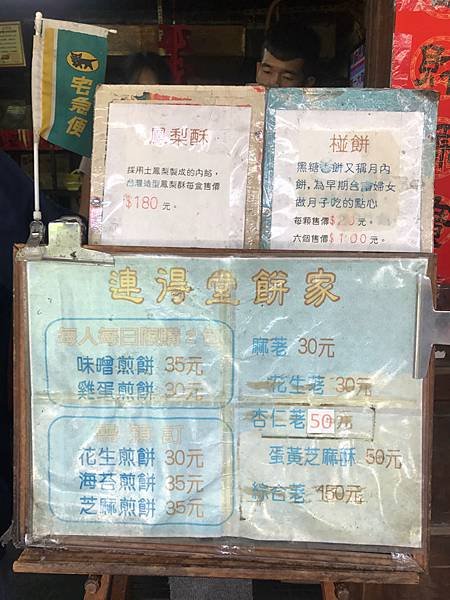 宅急便
鳳梨酥
採用土鳳梨製成的內餡，
台灣造型鳳梨酥每盒售價
$180元。
椪餅
黑糖香餅又稱月內
餅，為早期台灣婦女
做月子吃的點心
每顆售價$20元。
六個售價$100元。
連得堂餅家
每人每日限購2包
味噌煎餅 35元
雞蛋煎餅 30元
需預訂
花生煎餅 30元
海苔煎餅 35元
芝麻煎餅 35元
麻荖 30元
花生荖 30元
杏仁荖 50元
蛋黃芝麻酥 50元
綜合荖 150元